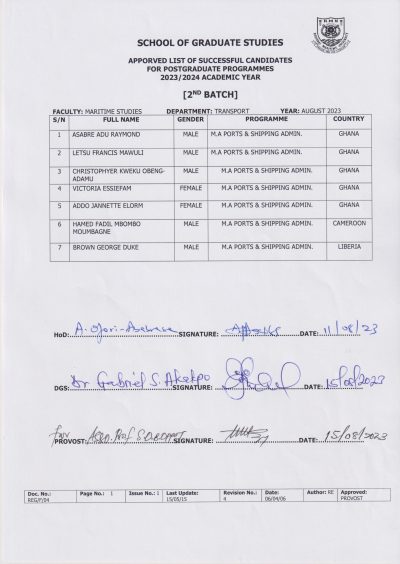 SCHOOL OF GRADUATE STUDIES
APPORVED LIST OF SUCCESSFUL CANDIDATES
FOR POSTGRADUATE PROGRAMMES
2023/2024 ACADEMIC YEAR
[2ND BATCH]
FACULTY: MARITIME STUDIES DEPARTMENT: TRANSPORT YEAR: AUGUST 2023
S/N FULL NAME GENDER PROGRAMME COUNTRY
1 ASABRE ADU RAYMOND MALE M.A PORTS & SHIPPING ADMIN. GHANA
2 LETSU FRANCIS MAWULI MALE M.A PORTS & SHIPPING ADMIN. GHANA
3 CHRISTOPHYER KWEKU OBENG-ADAMU MALE M.A PORTS & SHIPPING ADMIN. GHANA
4 VICTORIA ESSIEFAM FEMALE M.A PORTS & SHIPPING ADMIN. GHANA
5 ADDO JANNETTE ELORM FEMALE M.A PORTS & SHIPPING ADMIN. GHANA
6 HAMED FADIL MBOMBO MOUMBAGNE MALE M.A PORTS & SHIPPING ADMIN. CAMEROON
7 BROWN GEORGE DUKE MALE M.A PORTS & SHIPPING ADMIN. LIBERIA
HoD: SIGNATURE: DATE: 11/08/23
DGS: Dr Gabriel S. Akakpo SIGNATURE: DATE: 15/08/2023
for PROVOST: Asso. Prof. SIGNATURE: DATE: 15/08/2023
Doc. No.: REG/F/04 Page No.: 1 Issue No.: 1 Last Update: 15/05/15 Revision No.: 4 Date: 06/04/06 Author: RE Approved: PROVOST